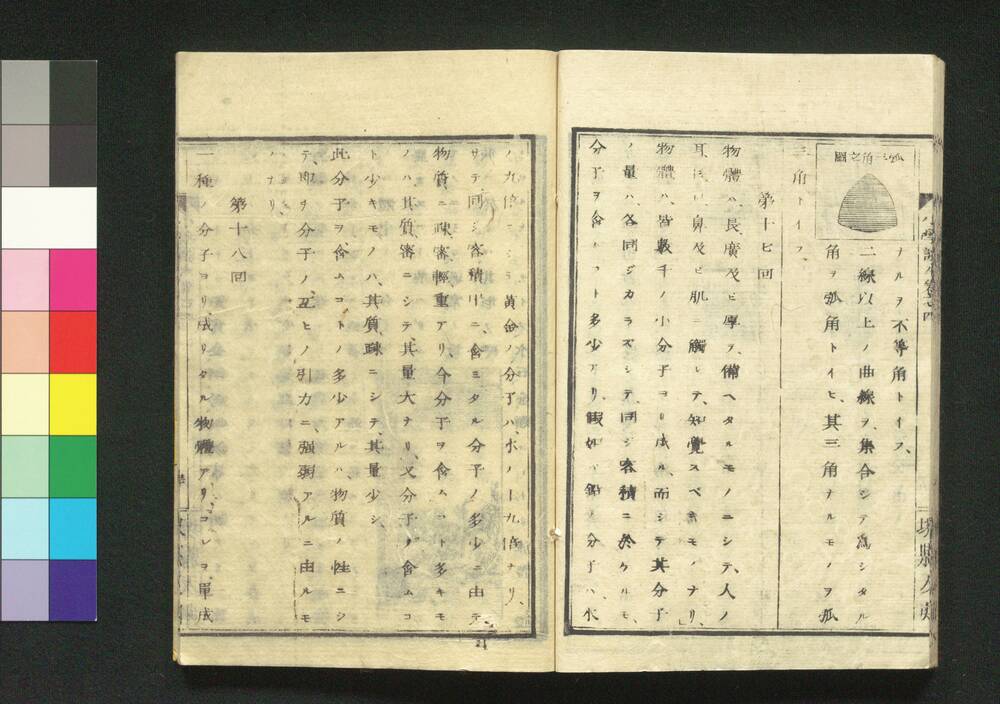 弧三角之圖
ナルヲ不等角トイフ、
二線以上ノ曲線ヲ、集合シテ爲シタル
角ヲ弧角トイヒ、其三角ナルモノヲ弧
三角トイフ、
第十七回
物體ハ、長廣及ビ厚ヲ、備ヘタルモノニシテ、人ノ
耳目口鼻及ビ肌ニ觸レテ、知覺スベキモノナリ、
物體ハ、皆數千ノ小分子ヨリ成ル、而シテ其分子
ノ量ハ、各同ジカラズシテ、同ジ容積ニ於ケルモ、
分子ヲ含ムコト多少アリ、假如バ鉛ノ分子ハ、水
ノ九倍ニシテ、黄金ノ分子ハ、水ノ十九倍ナリ、
サテ同ジ容積中ニ、含ミタル分子ノ多少ニ由テ
物質ニ疎密輕重アリ、今分子ヲ含ムコト多キモ
ノハ、其質密ニシテ、其量大ナリ、又分子ノ含ムコ
ト少キモノハ、其質疎ニシテ、其量少シ、
此分子ヲ含ムコトノ多少アルハ、物質ノ性ニシ
テ、即チ分子ノ互ヒノ引力ニ、強弱アルニ由ルモ
ノナリ、
第十八回
一種ノ分子ヨリ、成リタル物體アリ、コレヲ單成
小學讀本卷之四